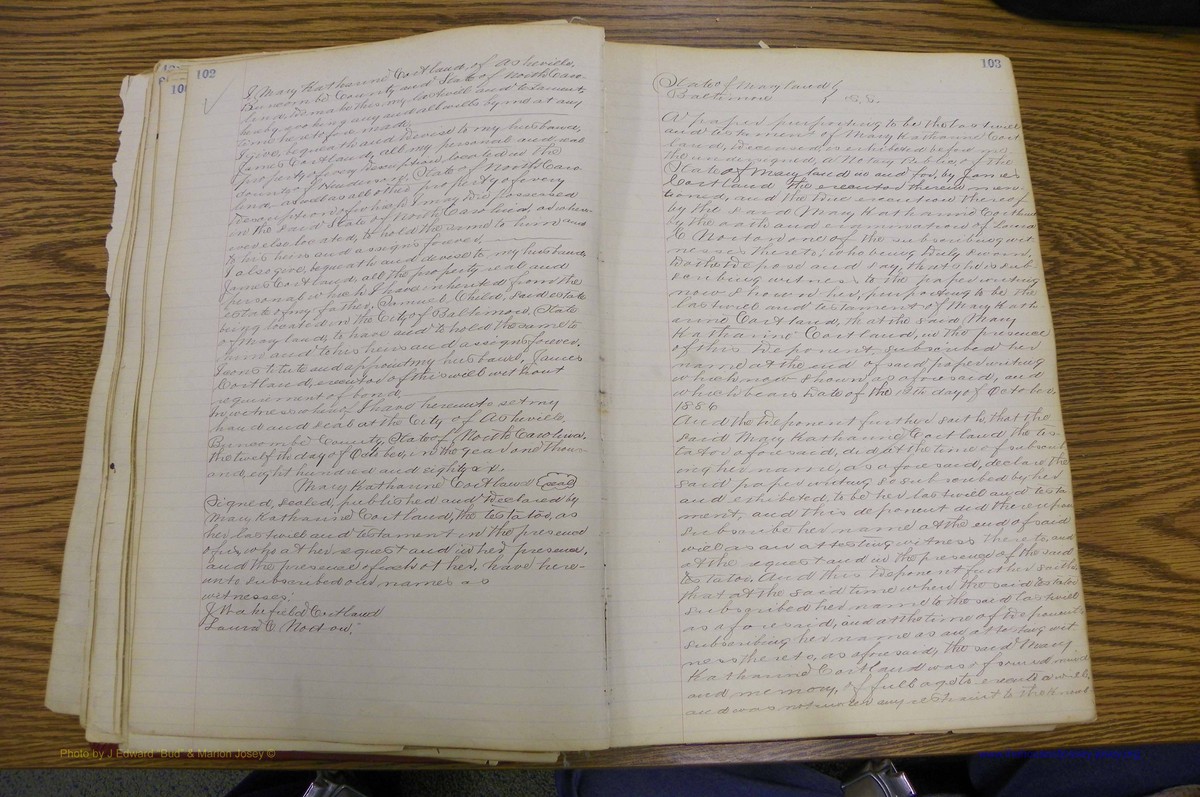 102
I Mary Katharine Cortland, of Asheville,
Buncombe County and State of North Caro-
lina do make this my last will and testament
hereby revoking any and all wills by me at any
time heretofore made.
I give, bequeath and devise to my husband,
James Cortland, all my personal and real
property of every description located in the
County of Henderson, State of North Caro-
lina, as well as all other property of every
description of which I may die possessed
in the said State of North Carolina, or wher-
ever else located, to hold the same to him and
to his heirs and assigns forever.
I also give, bequeath and devise to my husband,
James Cortland, all the property real and
personal which I have inherited from the
estate of my father, Samuel Child, said estate
being located in the City of Baltimore, State
of Maryland, to have and to hold the same to
him and to his heirs and assigns forever.
I constitute and appoint my husband, James
Cortland, executor of this will without
requirement of bond.
In witness whereof I have hereunto set my
hand and seal at the City of Asheville,
Buncombe County, State of North Carolina,
the twelfth day of October, in the year one thous-
and, eight hundred and eighty six.
Mary Katharine Cortland (seal)
Signed, sealed, published and declared by
Mary Katharine Cortland, the testator, as
her last will and testament in the presence
of us, who at her request and in her presence,
and the presence of each other, have here-
unto subscribed our names as
witnesses:
J Wakefield Cortland
Laura C. Norton,
103
State of Maryland (
Baltimore ( S.S.
A paper purporting to be the last will
and testament of Mary Katharine Cort
land, deceased, is exhibited before me,
the undersigned, a Notary Public, of the
State of Maryland in and for, by James
Cortland the executor therein men-
tioned, and the due execution thereof
by the said Mary Katharine Cortland
by the oath and examination of Laura
C. Norton one of the subscribing wit
nesses thereto; who being duly sworn,
doth depose and say, that she is sub-
scribing witness to the paper writing
now shown her, purporting to be the
last will and testament of Mary Kath
arine Cortland, that the said Mary
Katharine Cortland, in the presence
of this deponent, subscribed her
name at the end of said paper writing
which now shown as aforesaid, and
which bears date of the 12th day of October,
1886
And the deponent further saith, that the
said Mary Katharine Cortland, the tes-
tator aforesaid, did at the time of subscrib
ing her name, as aforesaid, declare the
said paper writing so subscribed by her
and exhibited, to be her last will and testa
ment, and this deponent did thereupon
subscribe her name at the end of said
will as an attesting witness thereto, and
at the request and in the presence of the said
testator. And this deponent further saith
that at the said time when the said testator
subscribed her name to the said last will
as aforesaid, and at the time of deponent's
subscribing her name as an attesting wit
ness thereto, as aforesaid, the said Mary
Katharine Cortland was of sound mind
and memory, of full age to execute a will,
and was not under any restraint to the know
Photo by J Edward "Bud" & Marion Josey ©